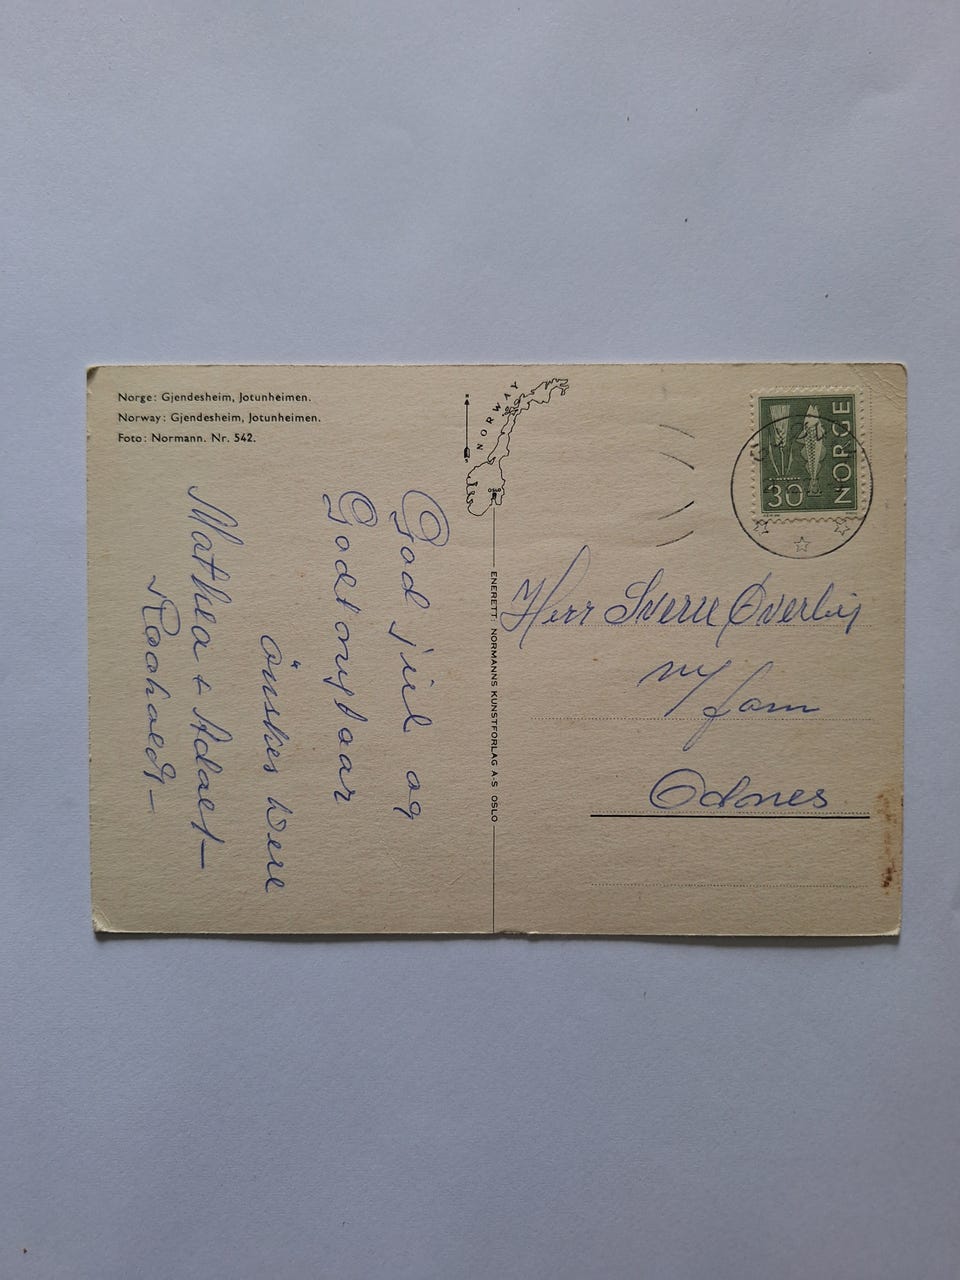 Norge: Gjendesheim, Jotunheimen.
Norway: Gjendesheim, Jotunheimen.
Foto: Normann. Nr. 542.
God jul og
Godt nytt aar
önskes Dere
Mathea & Adolf
NORWAY
OSLO
ENERETT: NORMANNS KUNSTFORLAG A-S OSLO
NORGE
30
Herr Sverre Øverby
m/ fam
Odnes